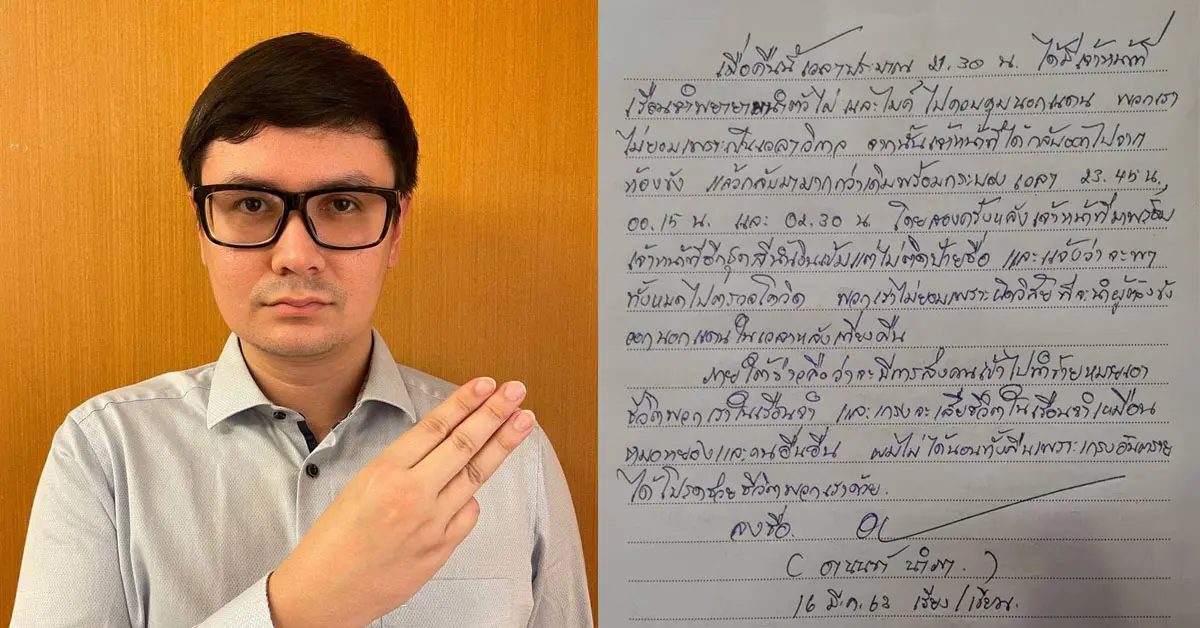 เมื่อคืนนี้ เวลาประมาณ 21.30 น. ได้มีเจ้าหน้าที่
เรือนจำพยายามนำตัวไผ่ และไมค์ ไปควบคุมนอกแดน พวกเรา
ไม่ยอมเพราะเป็นเวลาวิกาล จากนั้นเจ้าหน้าที่ได้กลับออกไปจาก
ห้องขัง แล้วกลับมามากกว่าเดิมพร้อมกระบอง เวลา 23.45 น.,
00.15 น. และ 02.30 น. โดยสองครั้งหลังเจ้าหน้าที่มาพร้อม
เจ้าหน้าที่อีกชุดสีน้ำเงินเข้มแต่ไม่ติดป้ายชื่อ และแจ้งว่าจะพา
ทั้งหมดไปตรวจโควิด พวกเราไม่ยอมเพราะผิดวิสัยที่จะนำผู้ต้องขัง
ออกนอกแดนในเวลาหลังเที่ยงคืน
ภายใต้ข่าวลือว่าจะมีการส่งคนเข้าไปทำร้ายหมายเอา
ชีวิตพวกเราในเรือนจำ และเกรงจะเสียชีวิตในเรือนจำเหมือน
หมอหยองและคนอื่นอื่น ผมไม่ได้นอนทั้งคืนเพราะเกรงอันตราย
ได้โปรดช่วยชีวิตพวกเราด้วย.
ลงชื่อ.
( อานนท์ นำภา. )
16 มี.ค. เรียง/เขียน.